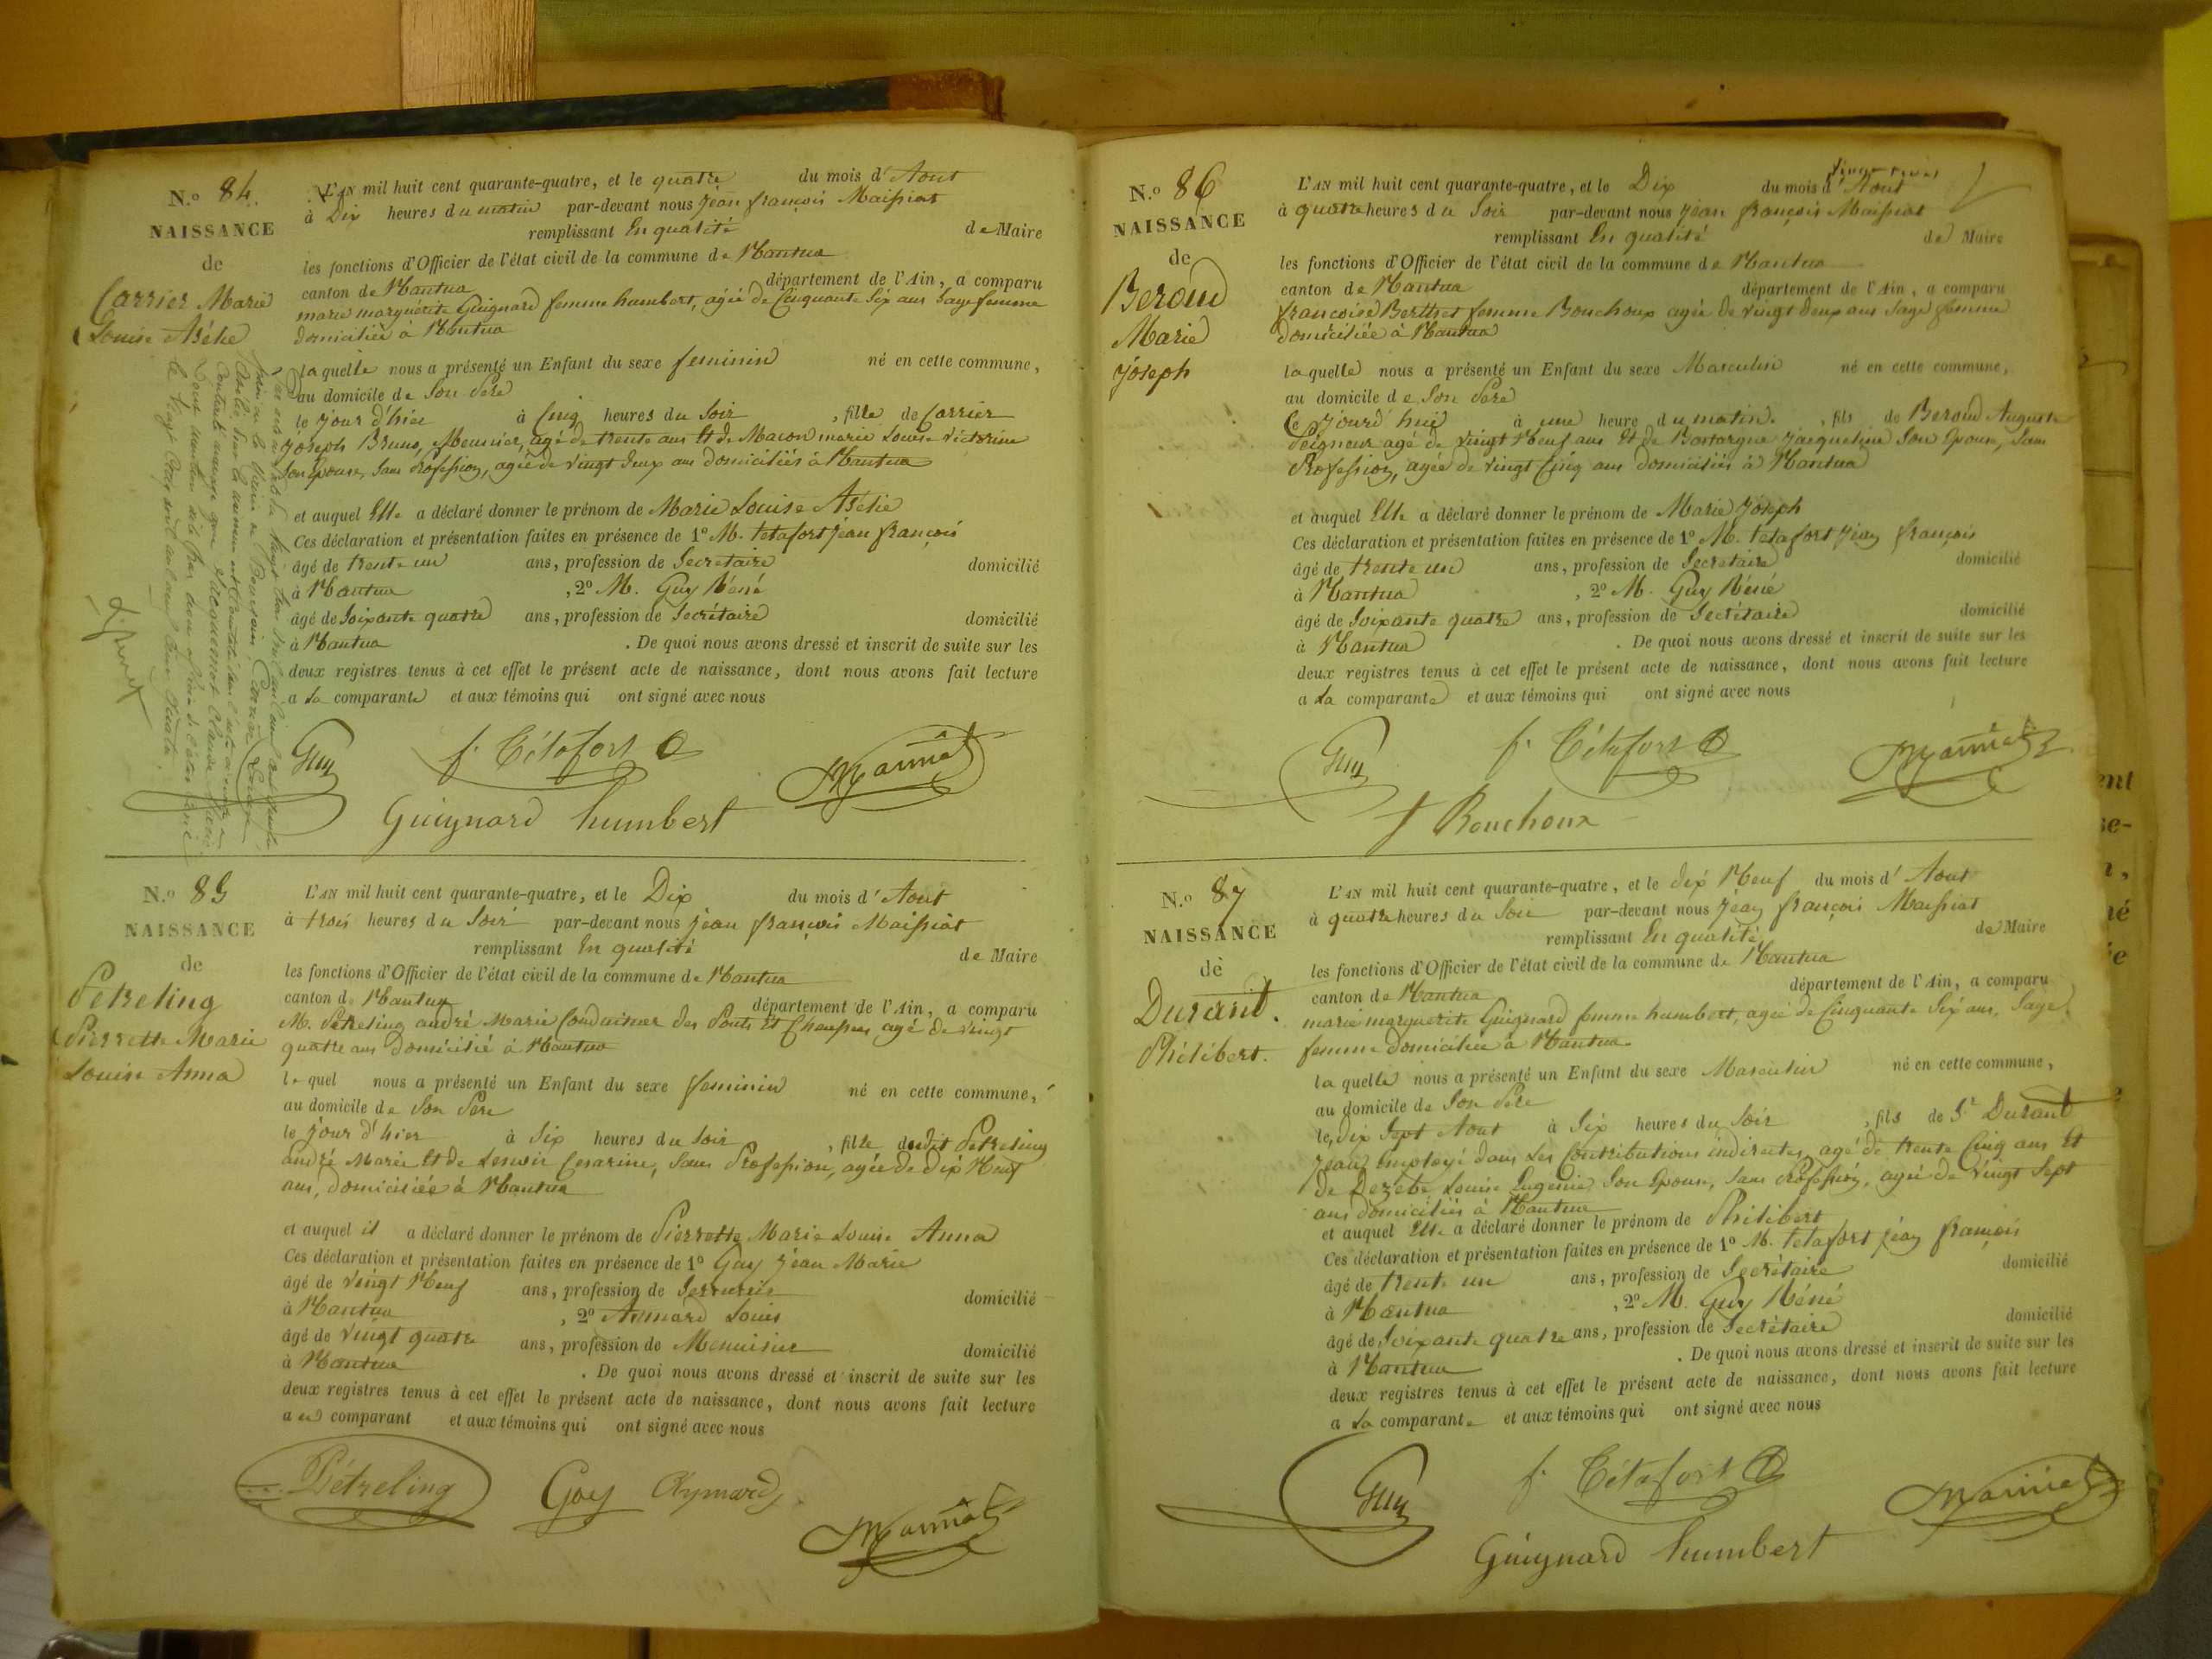 N.o 84.
NAISSANCE
de
Carrier Marie
Louise Asélie
L'AN mil huit cent quarante-quatre, et le quatre du mois d'Aout
à Dix heures du matin par-devant nous jean françois Maissiat
remplissant En qualité de Maire
les fonctions d'Officier de l'état civil de la commune de Nantua
canton de Nantua département de l'Ain, a comparu
marie marguerite Guignard femme humbert, agée de Cinquante Six ans Sage femme
domiciliée à Nantua
laquelle nous a présenté un Enfant du sexe feminin né en cette commune,
au domicile de Son Père
le jour d'hier à Cinq heures du Soir, fille de Carrier
joseph Bruno, Meunier, agé de trente ans Et de Macon marie Louise Victorine
Son Epouse, Sans Profession, agée de vingt Deux ans domiciliés à Nantua
et auquel Elle a déclaré donner le prénom de Marie Louise Asélie
Ces déclaration et présentation faites en présence de 1º M. tetafort jean françois
âgé de trente un ans, profession de Secretaire domicilié
à Nantua, 2º M. Guy Réné
âgé de Soixante quatre ans, profession de Secrétaire domicilié
à Nantua. De quoi nous avons dressé et inscrit de suite sur les
deux registres tenus à cet effet le présent acte de naissance, dont nous avons fait lecture
a la comparante et aux témoins qui ont signé avec nous
Guy f. Tétafort
Guignard humbert
N.o 85
NAISSANCE
de
Petreling
Pierrette Marie
Louise Anna
L'AN mil huit cent quarante-quatre, et le Dix du mois d'Aout
à trois heures du Soir par-devant nous jean françois Maissiat
remplissant En qualité de Maire
les fonctions d'Officier de l'état civil de la commune de Nantua
canton de Nantua département de l'Ain, a comparu
M. Petreling andré Marie Conducteur des Ponts Et Chaussées agé de vingt
quatre ans domicilié à Nantua
lequel nous a présenté un Enfant du sexe feminin né en cette commune,
au domicile de Son Père
le jour d'hier à Six heures du Soir, fille dudit Petreling
andré Marie Et de Lenoir Cesarine, Sans Profession, agée de Dix Neuf
ans, domiciliée à Nantua
et auquel il a déclaré donner le prénom de Pierrette Marie Louise Anna
Ces déclaration et présentation faites en présence de 1º Gay jean Marie
âgé de vingt Neuf ans, profession de Serrurier domicilié
à Nantua, 2º Aymard Louis
âgé de vingt quatre ans, profession de Menuisier domicilié
à Nantua. De quoi nous avons dressé et inscrit de suite sur les
deux registres tenus à cet effet le présent acte de naissance, dont nous avons fait lecture
au comparant et aux témoins qui ont signé avec nous
Pétreling Gay Aymard
N.o 86
NAISSANCE
de
Beroud
Marie
joseph
L'AN mil huit cent quarante-quatre, et le Dix du mois d'Aout
à quatre heures du Soir par-devant nous jean françois Maissiat
remplissant En qualité de Maire
les fonctions d'Officier de l'état civil de la commune de Nantua
canton de Nantua département de l'Ain, a comparu
françoise Berthet femme Bouchoux agée de vingt deux ans Sage femme
domiciliée à Nantua
laquelle nous a présenté un Enfant du sexe Masculin né en cette commune,
au domicile de Son Père
Ce jourd'hui à une heure du matin, fils de Beroud Auguste
Peigneur agé de vingt Neuf ans Et de jacqueline Son Epouse, Sans
Profession, agée de vingt Cinq ans domiciliés à Nantua
et auquel Elle a déclaré donner le prénom de Marie joseph
Ces déclaration et présentation faites en présence de 1º M. tetafort jean françois
âgé de trente un ans, profession de Secretaire domicilié
à Nantua, 2º M. Guy Réné
âgé de Soixante quatre ans, profession de Secrétaire domicilié
à Nantua. De quoi nous avons dressé et inscrit de suite sur les
deux registres tenus à cet effet le présent acte de naissance, dont nous avons fait lecture
a la comparante et aux témoins qui ont signé avec nous
Guy f. Tétafort
f Bouchoux
N.o 87
NAISSANCE
de
Durand.
Philibert.
L'AN mil huit cent quarante-quatre, et le dix Neuf du mois d'Aout
à quatre heures du Soir par-devant nous jean françois Maissiat
remplissant En qualité de Maire
les fonctions d'Officier de l'état civil de la commune de Nantua
canton de Nantua département de l'Ain, a comparu
marie marguerite Guignard femme humbert, agée de Cinquante Six ans, Sage
femme domiciliée à Nantua
laquelle nous a présenté un Enfant du sexe Masculin né en cette commune,
au domicile de Son Père
le dix Sept Aout à Six heures du Soir, fils de Sr Durand
jean Employé dans les Contributions indirectes, agé de trente Cinq ans Et
de Louise Eugenie Son Epouse, Sans Profession, agée de vingt Sept
ans domiciliés à Nantua
et auquel Elle a déclaré donner le prénom de Philibert
Ces déclaration et présentation faites en présence de 1º M. tetafort jean françois
âgé de trente un ans, profession de Secrétaire domicilié
à Nantua, 2º M. Guy Réné
âgé de Soixante quatre ans, profession de Secrétaire domicilié
à Nantua. De quoi nous avons dressé et inscrit de suite sur les
deux registres tenus à cet effet le présent acte de naissance, dont nous avons fait lecture
a la comparante et aux témoins qui ont signé avec nous
Guy f. Tétafort
Guignard humbert